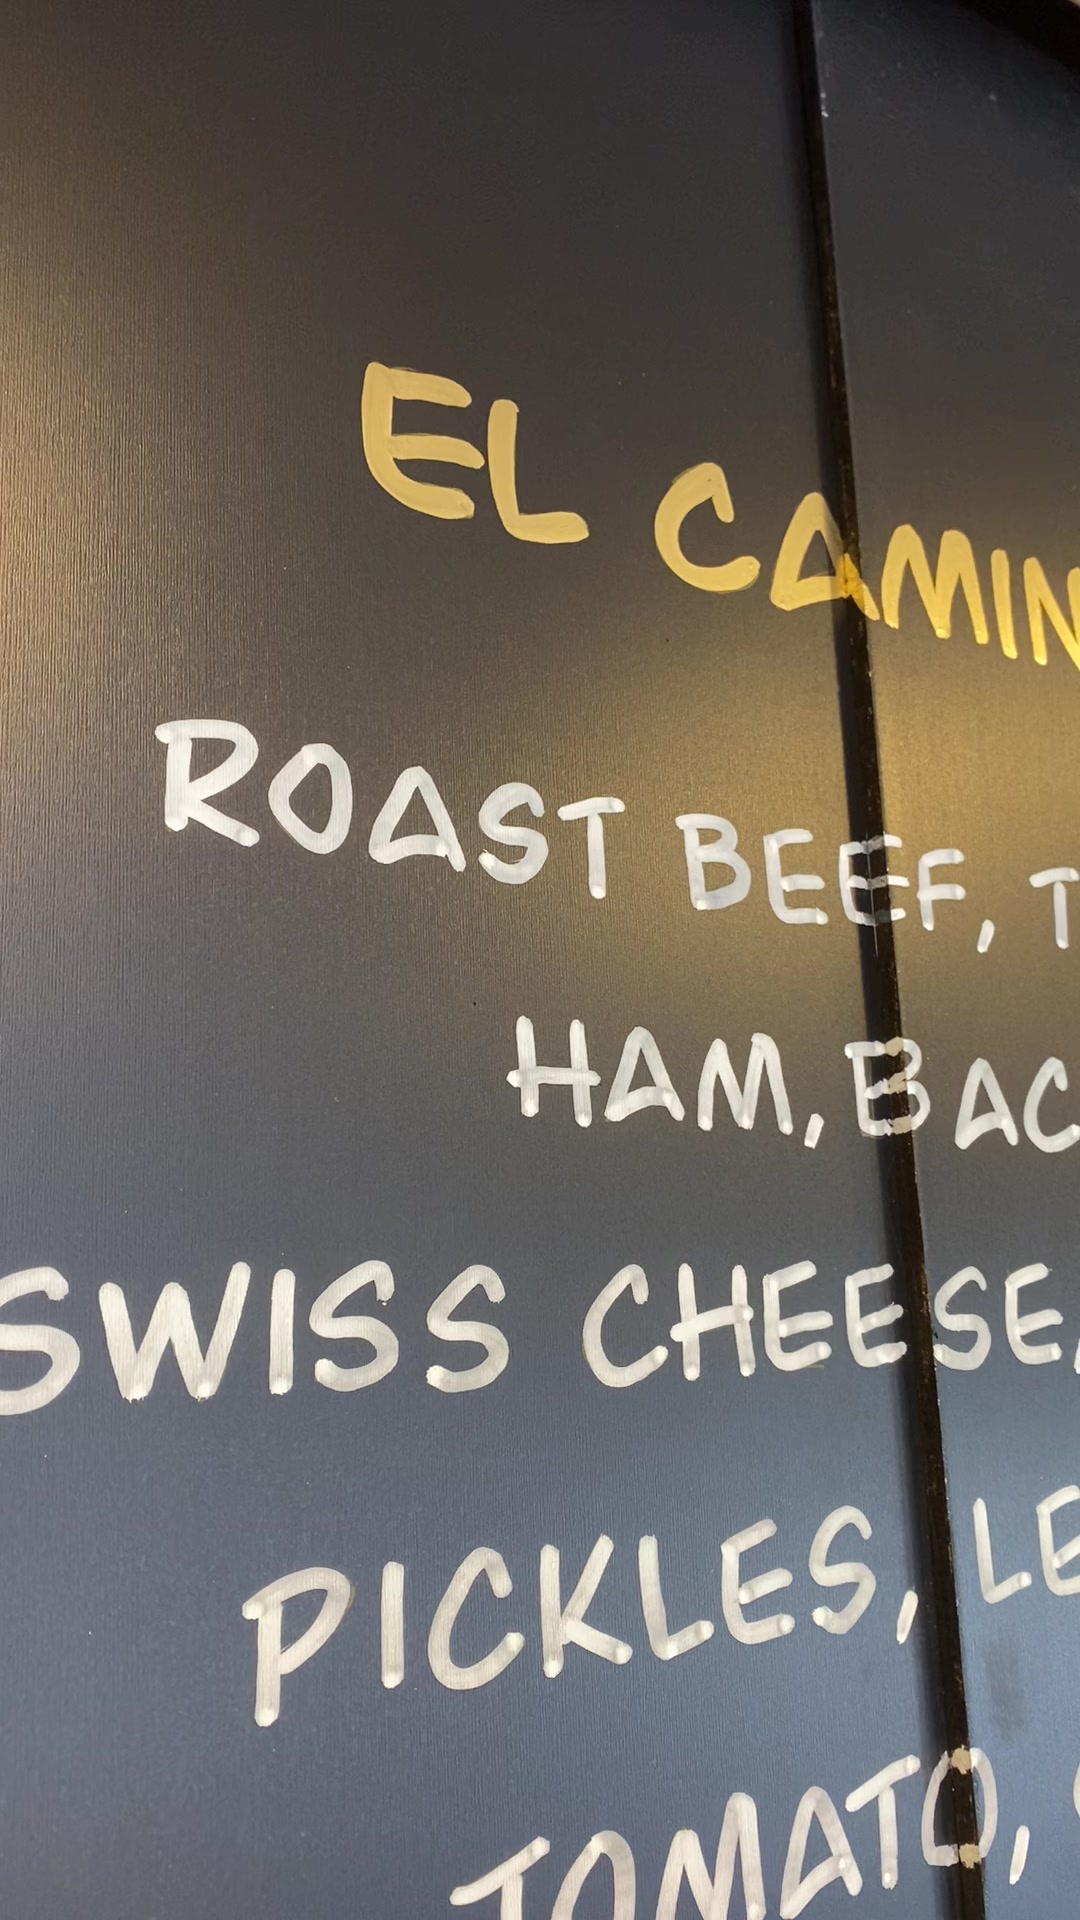 EL CAMIN
ROAST BEEF, T
HAM, BAC
SWISS CHEESE,
PICKLES, LE
TOMATO,